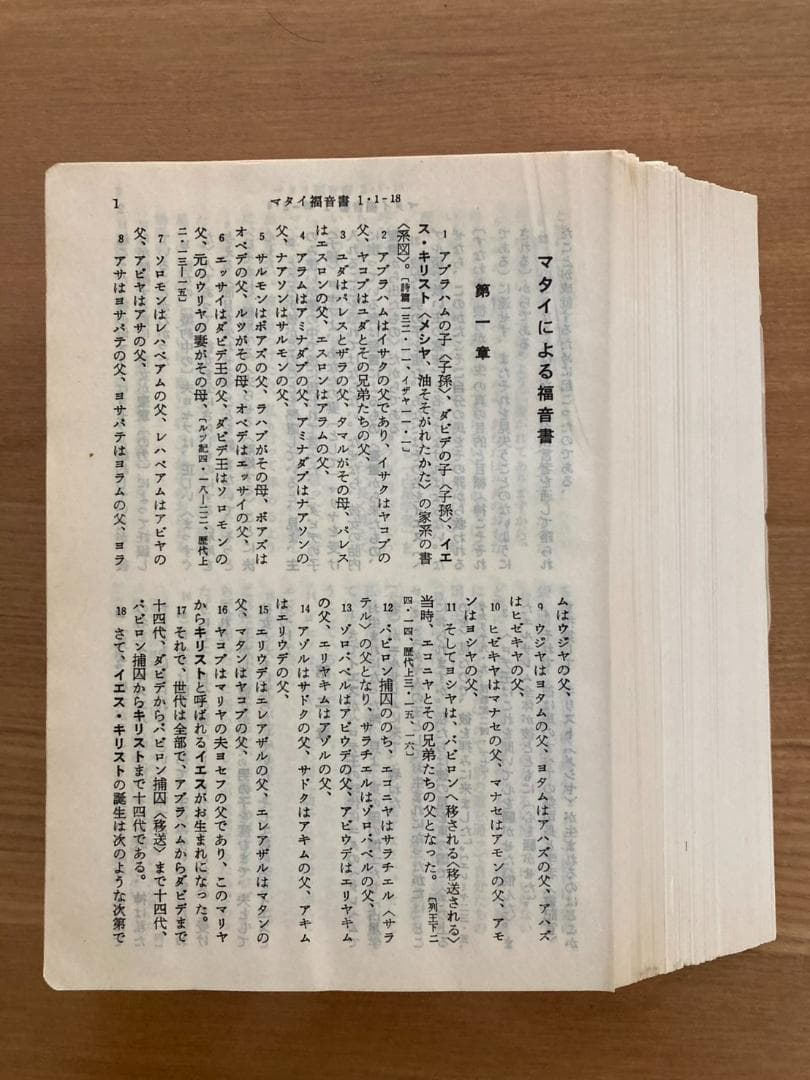 マタイ福音書 1・1-18
1
マタイによる福音書
第一章
1 アブラハムの子〈子孫〉、ダビデの子〈子孫〉、イエ
ス・キリスト〈メシヤ、油そそがれたかた〉の家系の書
〈系図〉。〔詩篇一三二・一一、イザヤ一一・一〕
2 アブラハムはイサクの父であり、イサクはヤコブの
父、ヤコブはユダとその兄弟たちの父、
3 ユダはパレスとザラの父、タマルがその母、パレス
はエスロンの父、エスロンはアラムの父、
4 アラムはアミナダブの父、アミナダブはナアソンの
父、ナアソンはサルモンの父、
5 サルモンはボアズの父、ラハブがその母、ボアズは
オベデの父、ルツがその母、オベデはエッサイの父、
6 エッサイはダビデ王の父、ダビデ王はソロモンの
父、元のウリヤの妻がその母、〔ルツ記四・一八―二二、歴代上
二・一三―一五〕
7 ソロモンはレハベアムの父、レハベアムはアビヤの
父、アビヤはアサの父、
8 アサはヨサパテの父、ヨサパテはヨラムの父、ヨラ
ムはウジヤの父、
9 ウジヤはヨタムの父、ヨタムはアハズの父、アハズ
はヒゼキヤの父、
10 ヒゼキヤはマナセの父、マナセはアモンの父、アモ
ンはヨシヤの父、
11 そしてヨシヤは、バビロンへ移される〈移送される〉
当時、エコニヤとその兄弟たちの父となった。〔列王下二
四・一四、歴代上三・一五、一六〕
12 バビロン捕囚ののち、エコニヤはサラチエル〈サラ
テル〉の父となり、サラチエルはゾロバベルの父、
13 ゾロバベルはアビウデの父、アビウデはエリヤキム
の父、エリヤキムはアゾルの父、
14 アゾルはサドクの父、サドクはアキムの父、アキム
はエリウデの父、
15 エリウデはエレアザルの父、エレアザルはマタンの
父、マタンはヤコブの父、
16 ヤコブはマリヤの夫ヨセフの父であり、このマリヤ
からキリストと呼ばれるイエスがお生まれになった。
17 それで、世代は全部で、アブラハムからダビデまで
十四代、ダビデからバビロン捕囚〈移送〉まで十四代、
バビロン捕囚からキリストまで十四代である。
18 さて、イエス・キリストの誕生は次のような次第で